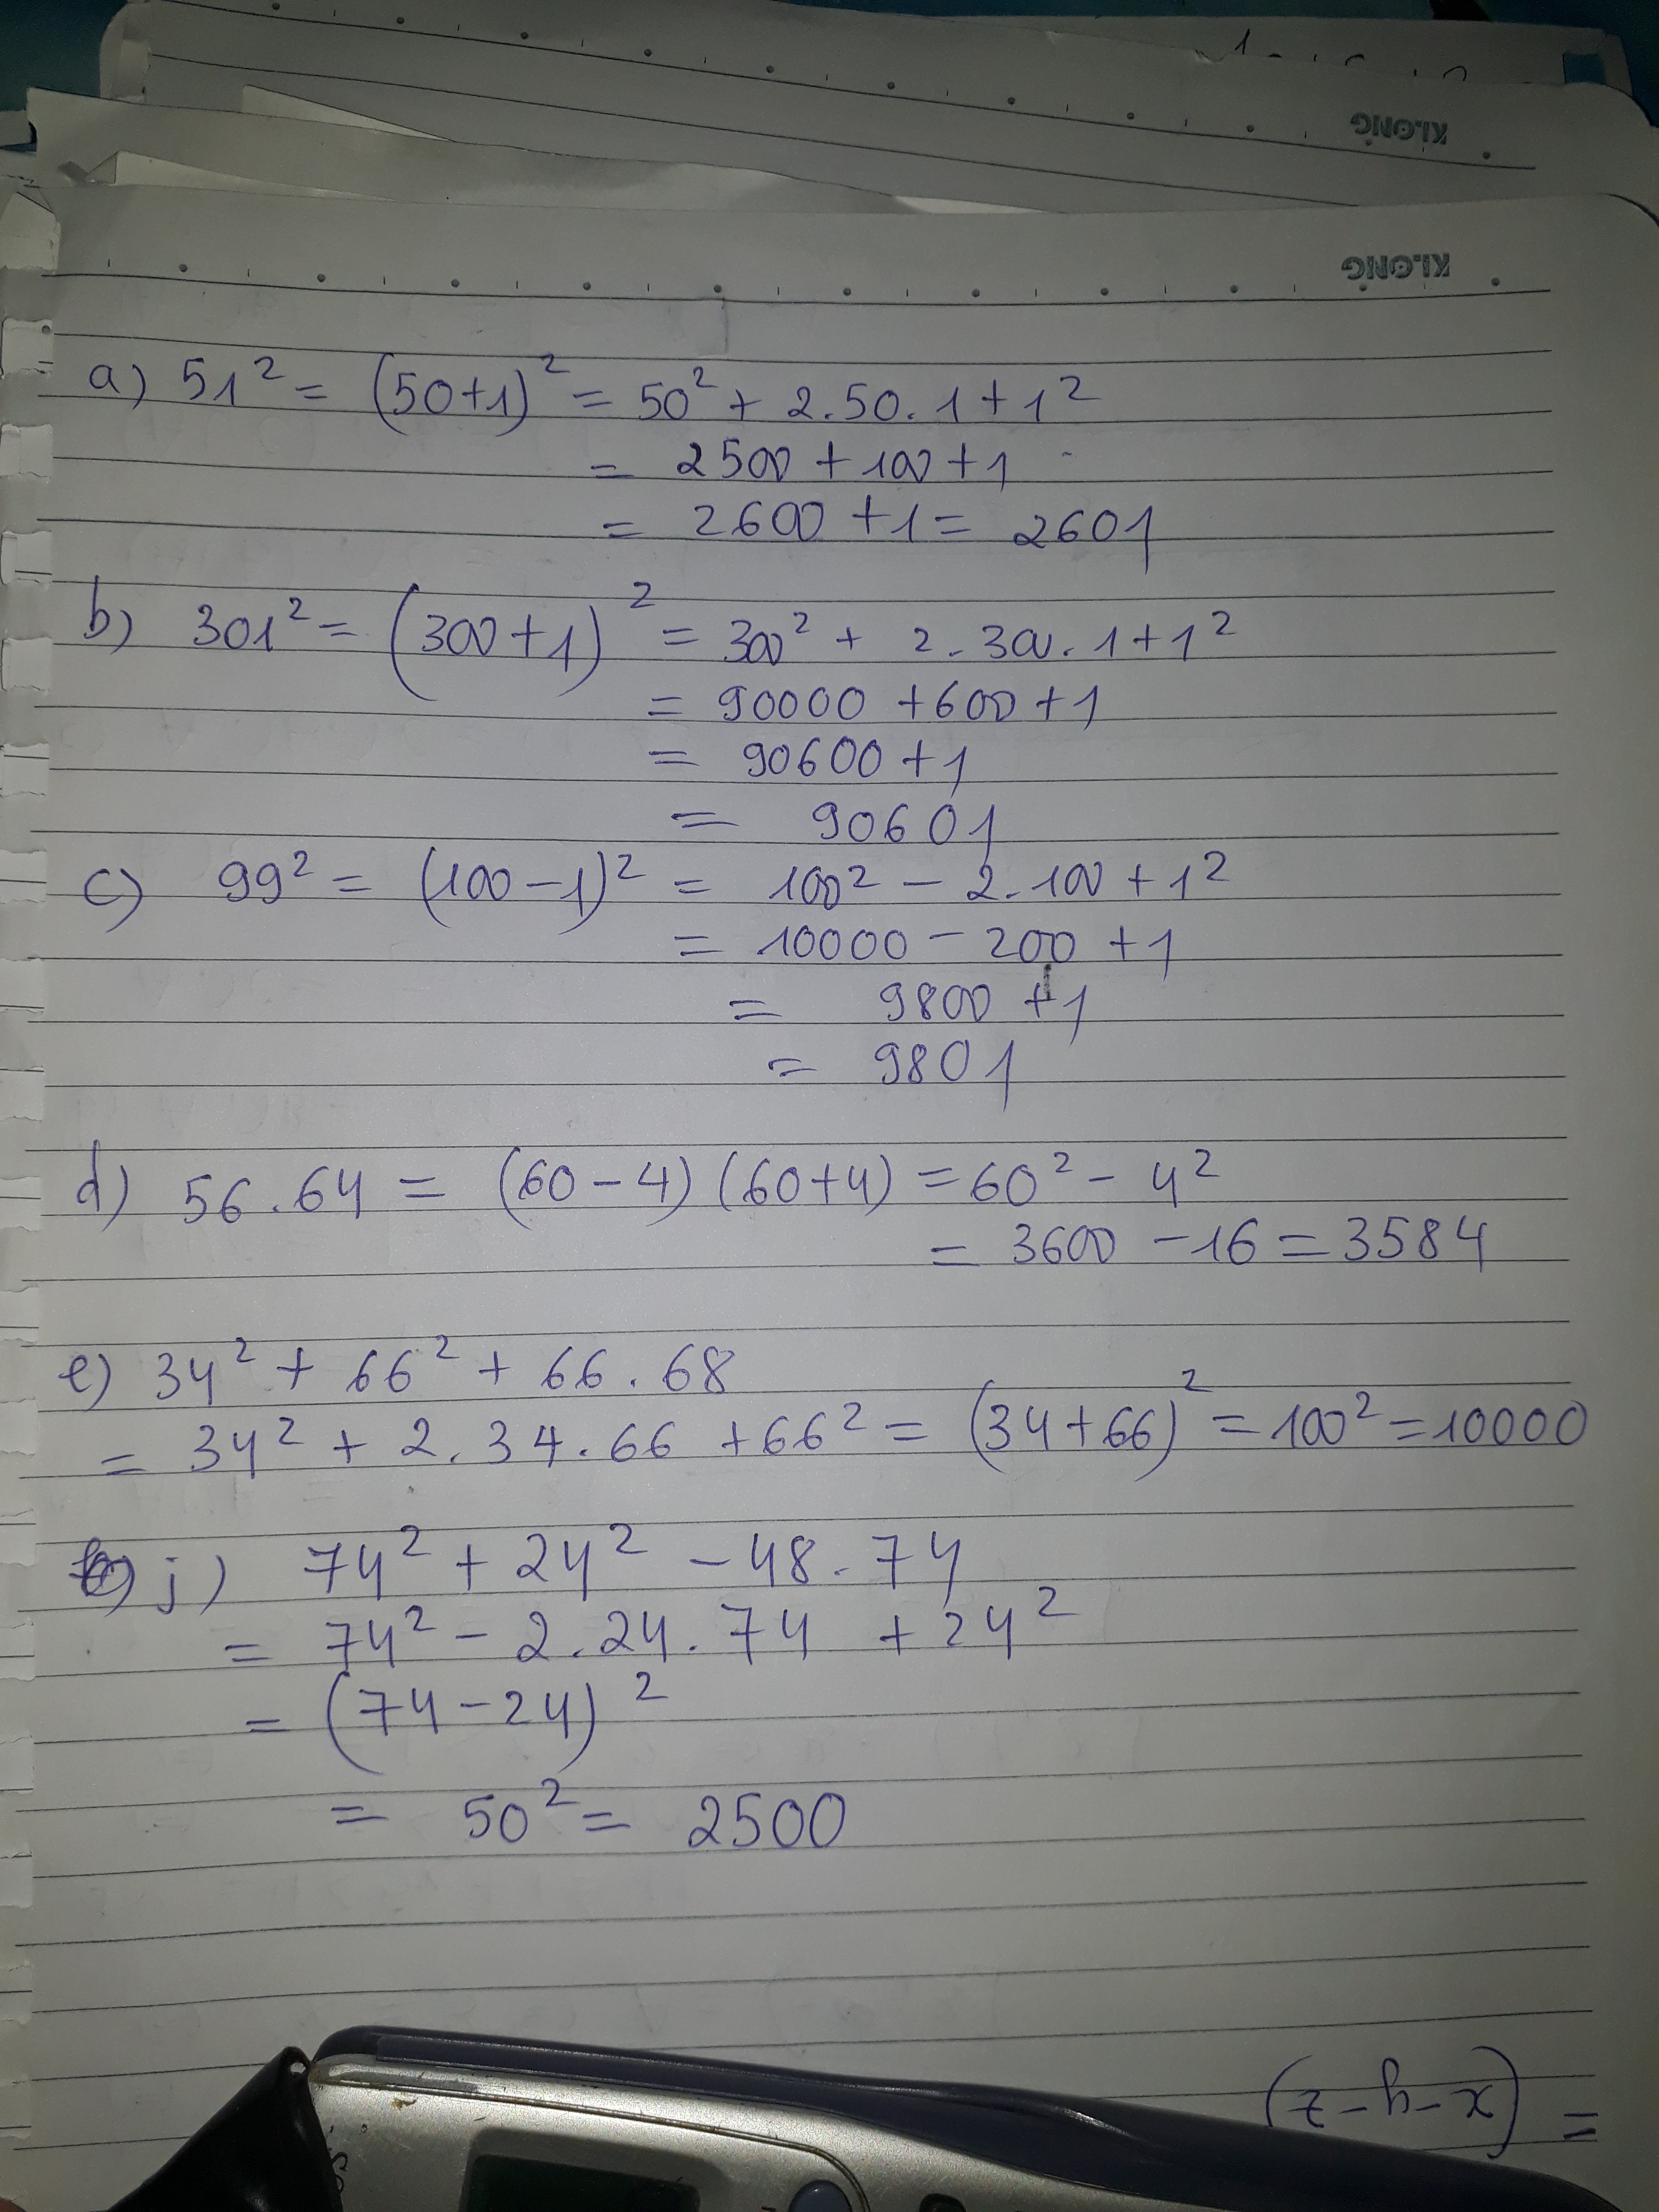 KLONG
KLONG
a) 51² = (50+1)² = 50² + 2.50.1 + 1²
= 2500 + 100 + 1
= 2600 + 1 = 2601
b) 301² = (300+1)² = 300² + 2.300.1 + 1²
= 90000 + 600 + 1
= 90600 + 1
= 90601
c) 99² = (100 - 1)² = 100² - 2.100 + 1²
= 10000 - 200 + 1
= 9800 + 1
= 9801
d) 56.64 = (60 - 4) (60 + 4) = 60² - 4²
= 3600 - 16 = 3584
e) 34² + 66² + 66.68
= 34² + 2.34.66 + 66² = (34 + 66)² = 100² = 10000
j) 74² + 24² - 48.74
= 74² - 2.24.74 + 24²
= (74 - 24)²
= 50² = 2500
= (x - y - z)